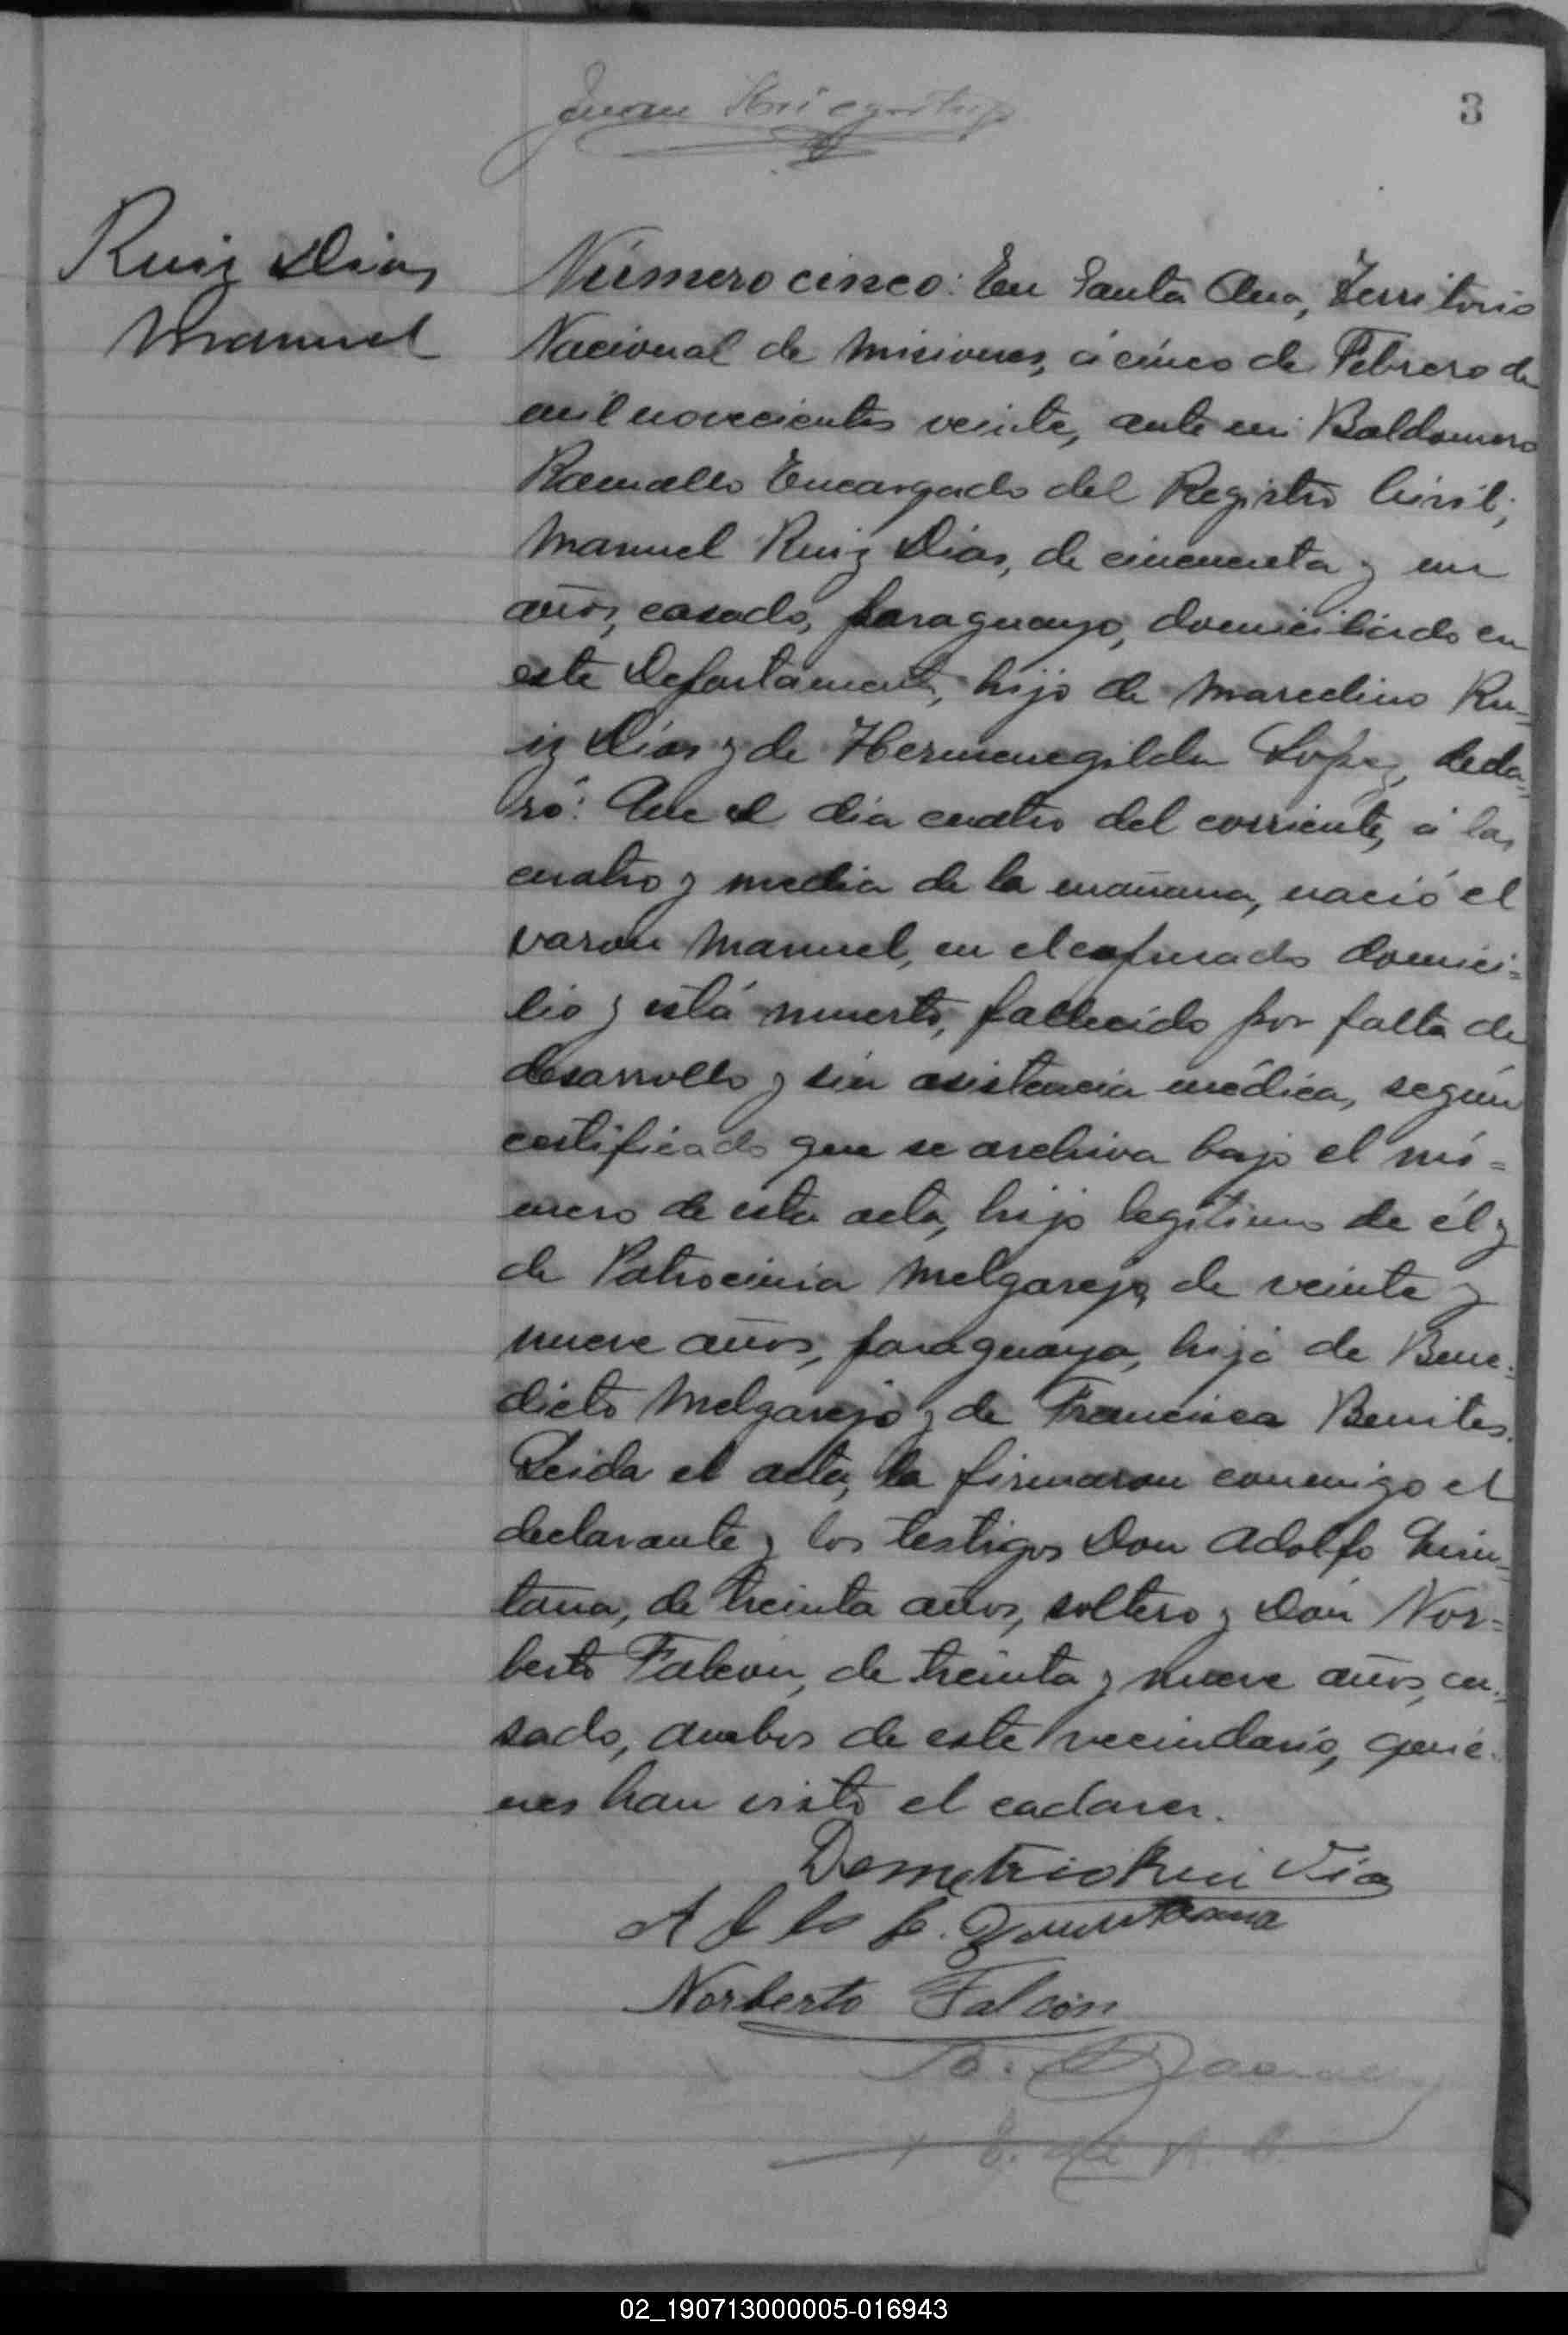 Juan
3
Ruiz Dias
Manuel
Número cinco: En Santa Ana, Territorio
Nacional de Misiones, á cinco de Febrero de
mil novecientos veinte, ante mi Baldomero
Ramallo Encargado del Registro Civil;
Manuel Ruiz Dias, de cincuenta y un
años, casado, paraguayo, domiciliado en
este Departamento, hijo de Marcelino Ru=
iz Dias y de Hermenegilda Lopez, decla=
ró: Que el dia cuatro del corriente, á las
cuatro y media de la mañana, nació el
varon Manuel, en el expresado domici=
lio y está muerto, fallecido por falta de
desarrollo y sin asistencia médica, según
certificado que se archiva bajo el nú=
mero de esta acta, hijo legitimo de él y
de Patrocinia Melgarejo, de veinte y
nueve años, paraguaya, hija de Bene=
dicto Melgarejo y de Francisca Benites.
Leida el acta, la firmaron conmigo el
declarante y los testigos Don Adolfo Quin=
tana, de treinta años, soltero y Don Nor=
berto Falcon, de treinta y nueve años, ca=
sado, ambos de este vecindario, quie=
nes han visto el cadaver.
Demetrio Rui Dia
A L. Quintana
Norberto Falcón
B.
E. del R. C.
02_190713000005-016943